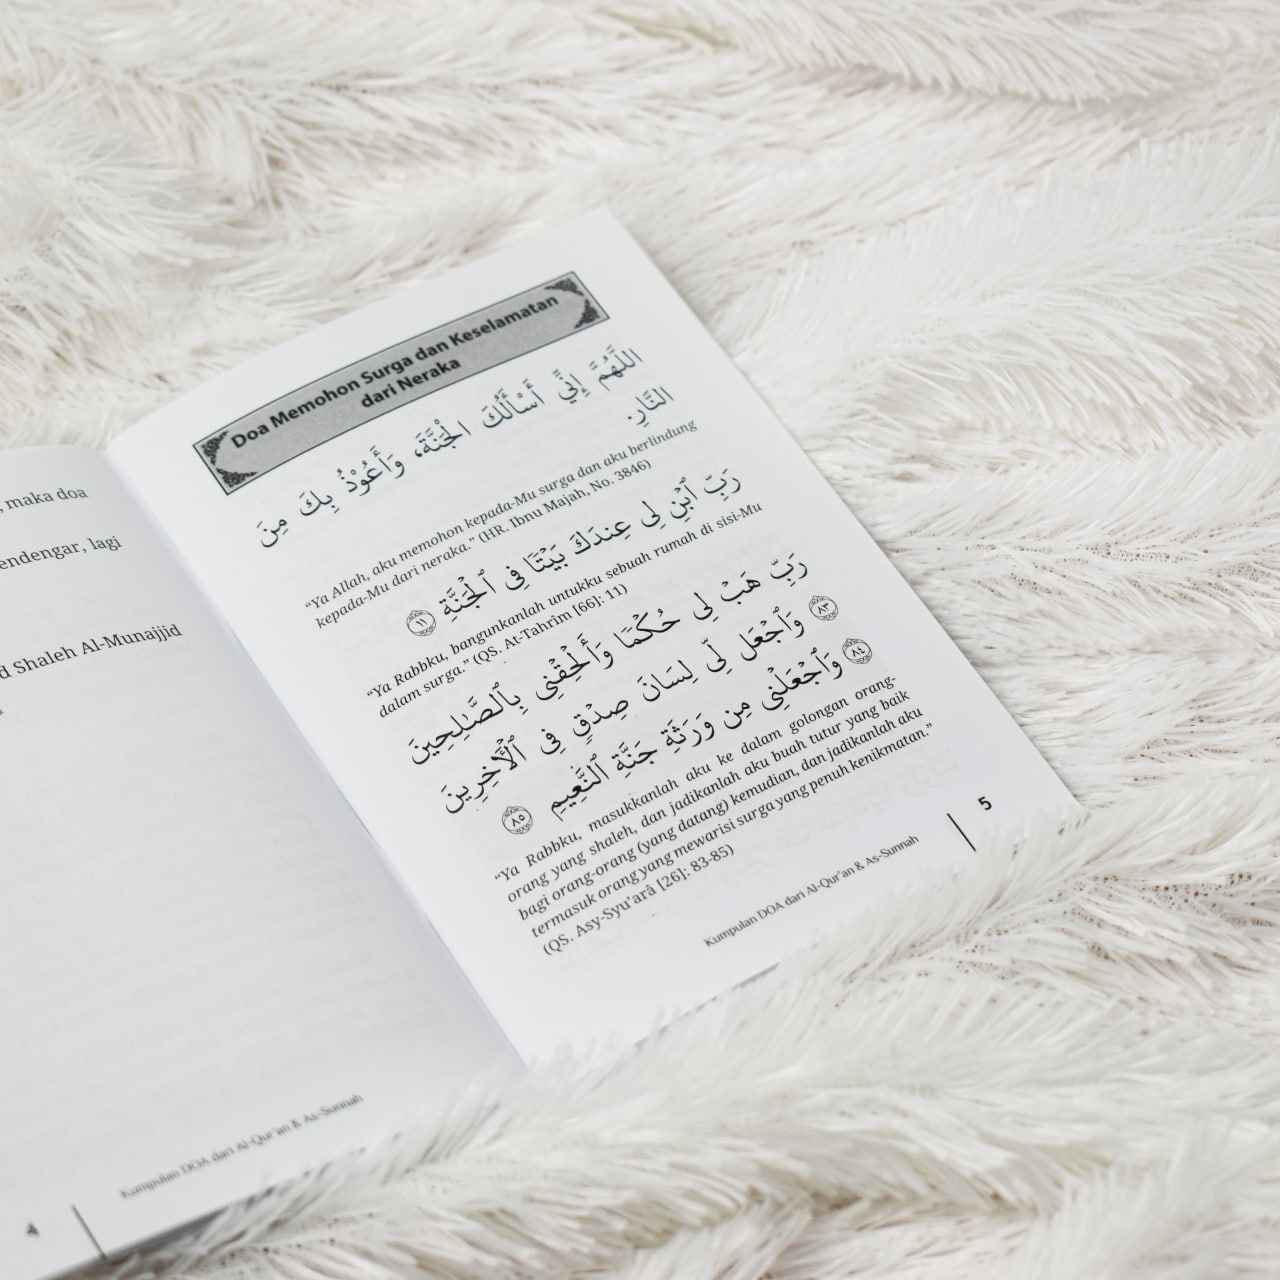 , maka doa
endengar, lagi
d Shaleh Al-Munajjid
Kumpulan DOA dari Al-Qur'an & As-Sunnah
4
Doa Memohon Surga dan Keselamatan
dari Neraka
اللَّهُمَّ إِنِّي أَسْأَلُكَ الْجَنَّةَ، وَأَعُوْذُ بِكَ مِنَ
النَّارِ.
"Ya Allah, aku memohon kepada-Mu surga dan aku berlindung
kepada-Mu dari neraka." (HR. Ibnu Majah, No. 3846)
رَبِّ ٱبْنِ لِى عِندَكَ بَيْتًا فِى ٱلْجَنَّةِ ١١
"Ya Rabbku, bangunkanlah untukku sebuah rumah di sisi-Mu
dalam surga." (QS. At-Tahrîm [66]: 11)
رَبِّ هَبْ لِى حُكْمًا وَأَلْحِقْنِى بِٱلصَّٰلِحِينَ
٨٣ وَٱجْعَل لِّى لِسَانَ صِدْقٍ فِى ٱلْأَخِرِينَ
٨٤ وَٱجْعَلْنِى مِن وَرَثَةِ جَنَّةِ ٱلنَّعِيمِ ٨٥
"Ya Rabbku, masukkanlah aku ke dalam golongan orang-
orang yang shaleh, dan jadikanlah aku buah tutur yang baik
bagi orang-orang (yang datang) kemudian, dan jadikanlah aku
termasuk orang yang mewarisi surga yang penuh kenikmatan."
(QS. Asy-Syu'arâ [26]: 83-85)
Kumpulan DOA dari Al-Qur'an & As-Sunnah
5